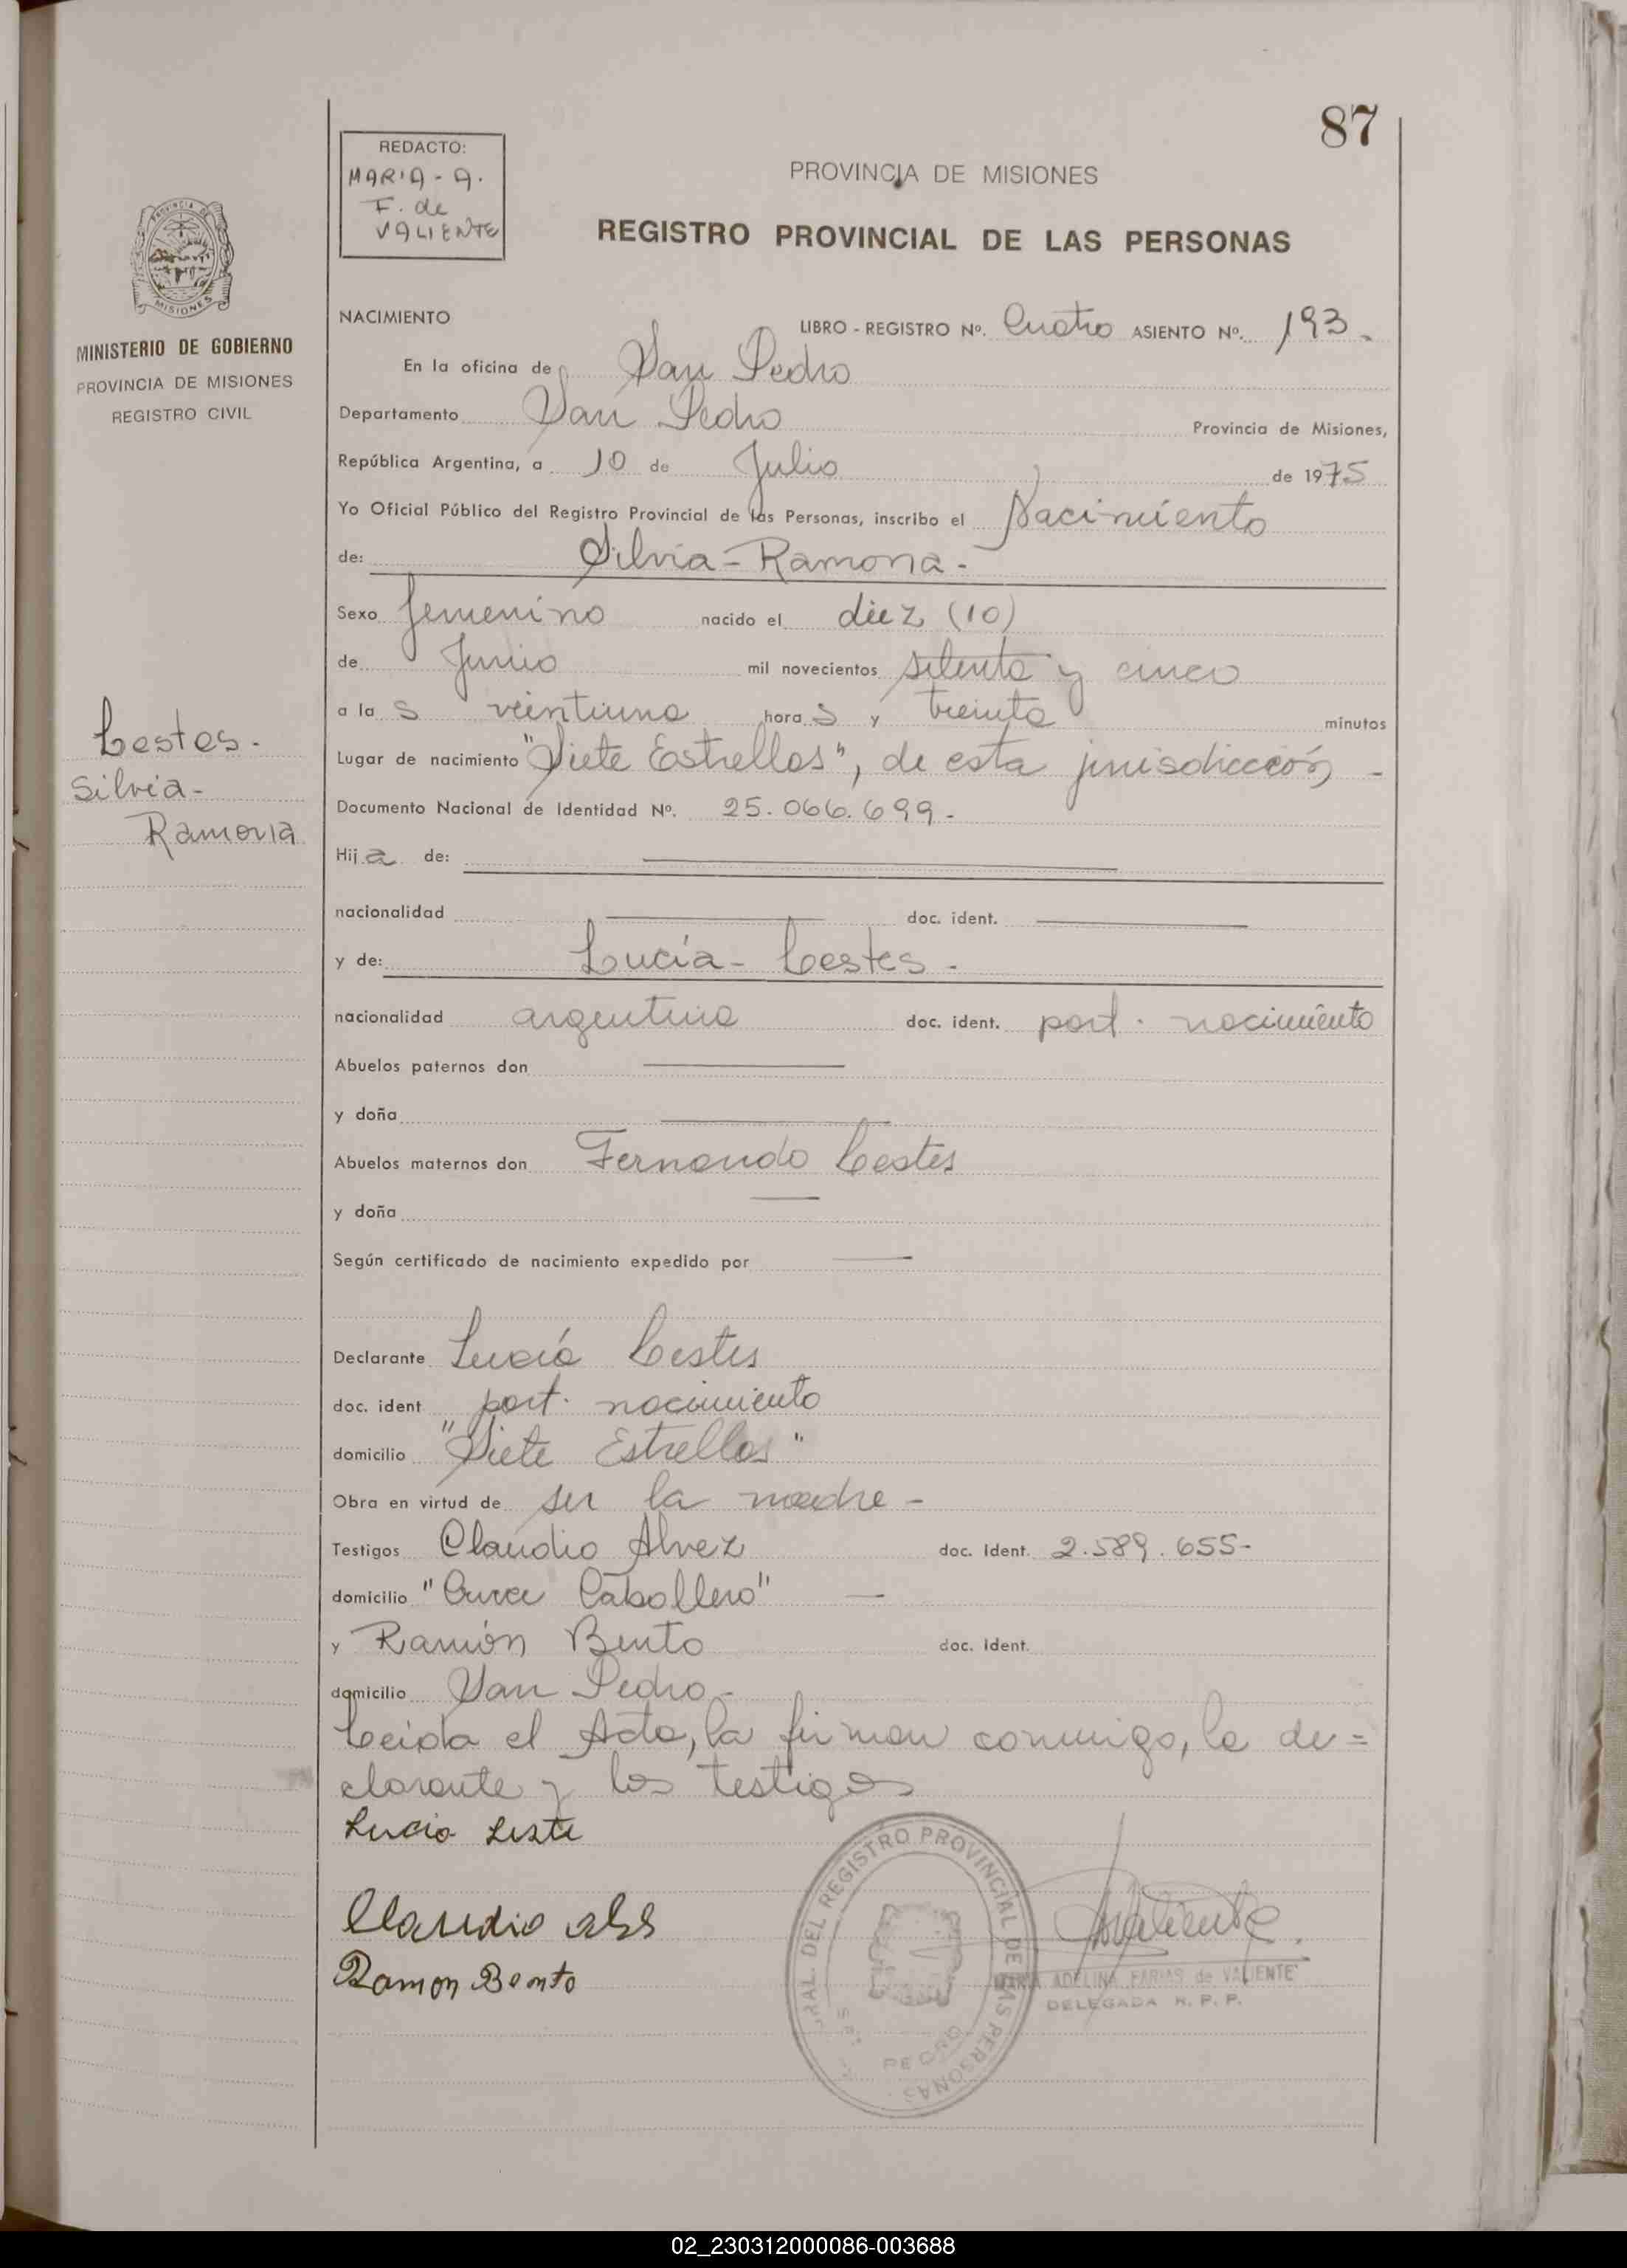 87
REDACTO:
MARIA - A.
F. de
VALIENTE
PROVINCIA DE MISIONES
REGISTRO PROVINCIAL DE LAS PERSONAS
PROVINCIA DE
MISIONES
MINISTERIO DE GOBIERNO
PROVINCIA DE MISIONES
REGISTRO CIVIL
Lestes.
Silvia-
Ramona
NACIMIENTO LIBRO - REGISTRO Nº. Cuatro ASIENTO Nº. 193.
En la oficina de San Pedro
Departamento San Pedro Provincia de Misiones,
República Argentina, a 10 de Julio de 1975
Yo Oficial Público del Registro Provincial de las Personas, inscribo el Nacimiento
de: Silvia - Ramona -
Sexo femenino nacido el diez (10)
de Junio mil novecientos setenta y cinco
a las veintiuna horas y treinta minutos
Lugar de nacimiento "Siete Estrellas", de esta jurisdicción -
Documento Nacional de Identidad Nº. 25.066.699 -
Hija de:
nacionalidad doc. ident.
y de: Lucía - Lestes -
nacionalidad argentina doc. ident. part. nacimiento
Abuelos paternos don
y doña
Abuelos maternos don Fernando Lestes
y doña
Según certificado de nacimiento expedido por
Declarante Lucía Lestes
doc. ident part. nacimiento
domicilio "Siete Estrellas"
Obra en virtud de ser la madre -
Testigos Claudio Alvez doc. ident. 2.589.655-
domicilio " Caballero" —
y Ramón Bento doc. ident.
domicilio San Pedro -
Leída el Acta, la firman conmigo, la de=
clarante y los testigos
Lucia Leste
Claudio
Ramon Bento
RAL. DEL REGISTRO PROVINCIAL DE LAS PERSONAS
PEDRO
Valiente
MARIA ADELINA FARIAS de VALIENTE
DELEGADA R. P. P.
02_230312000086-003688